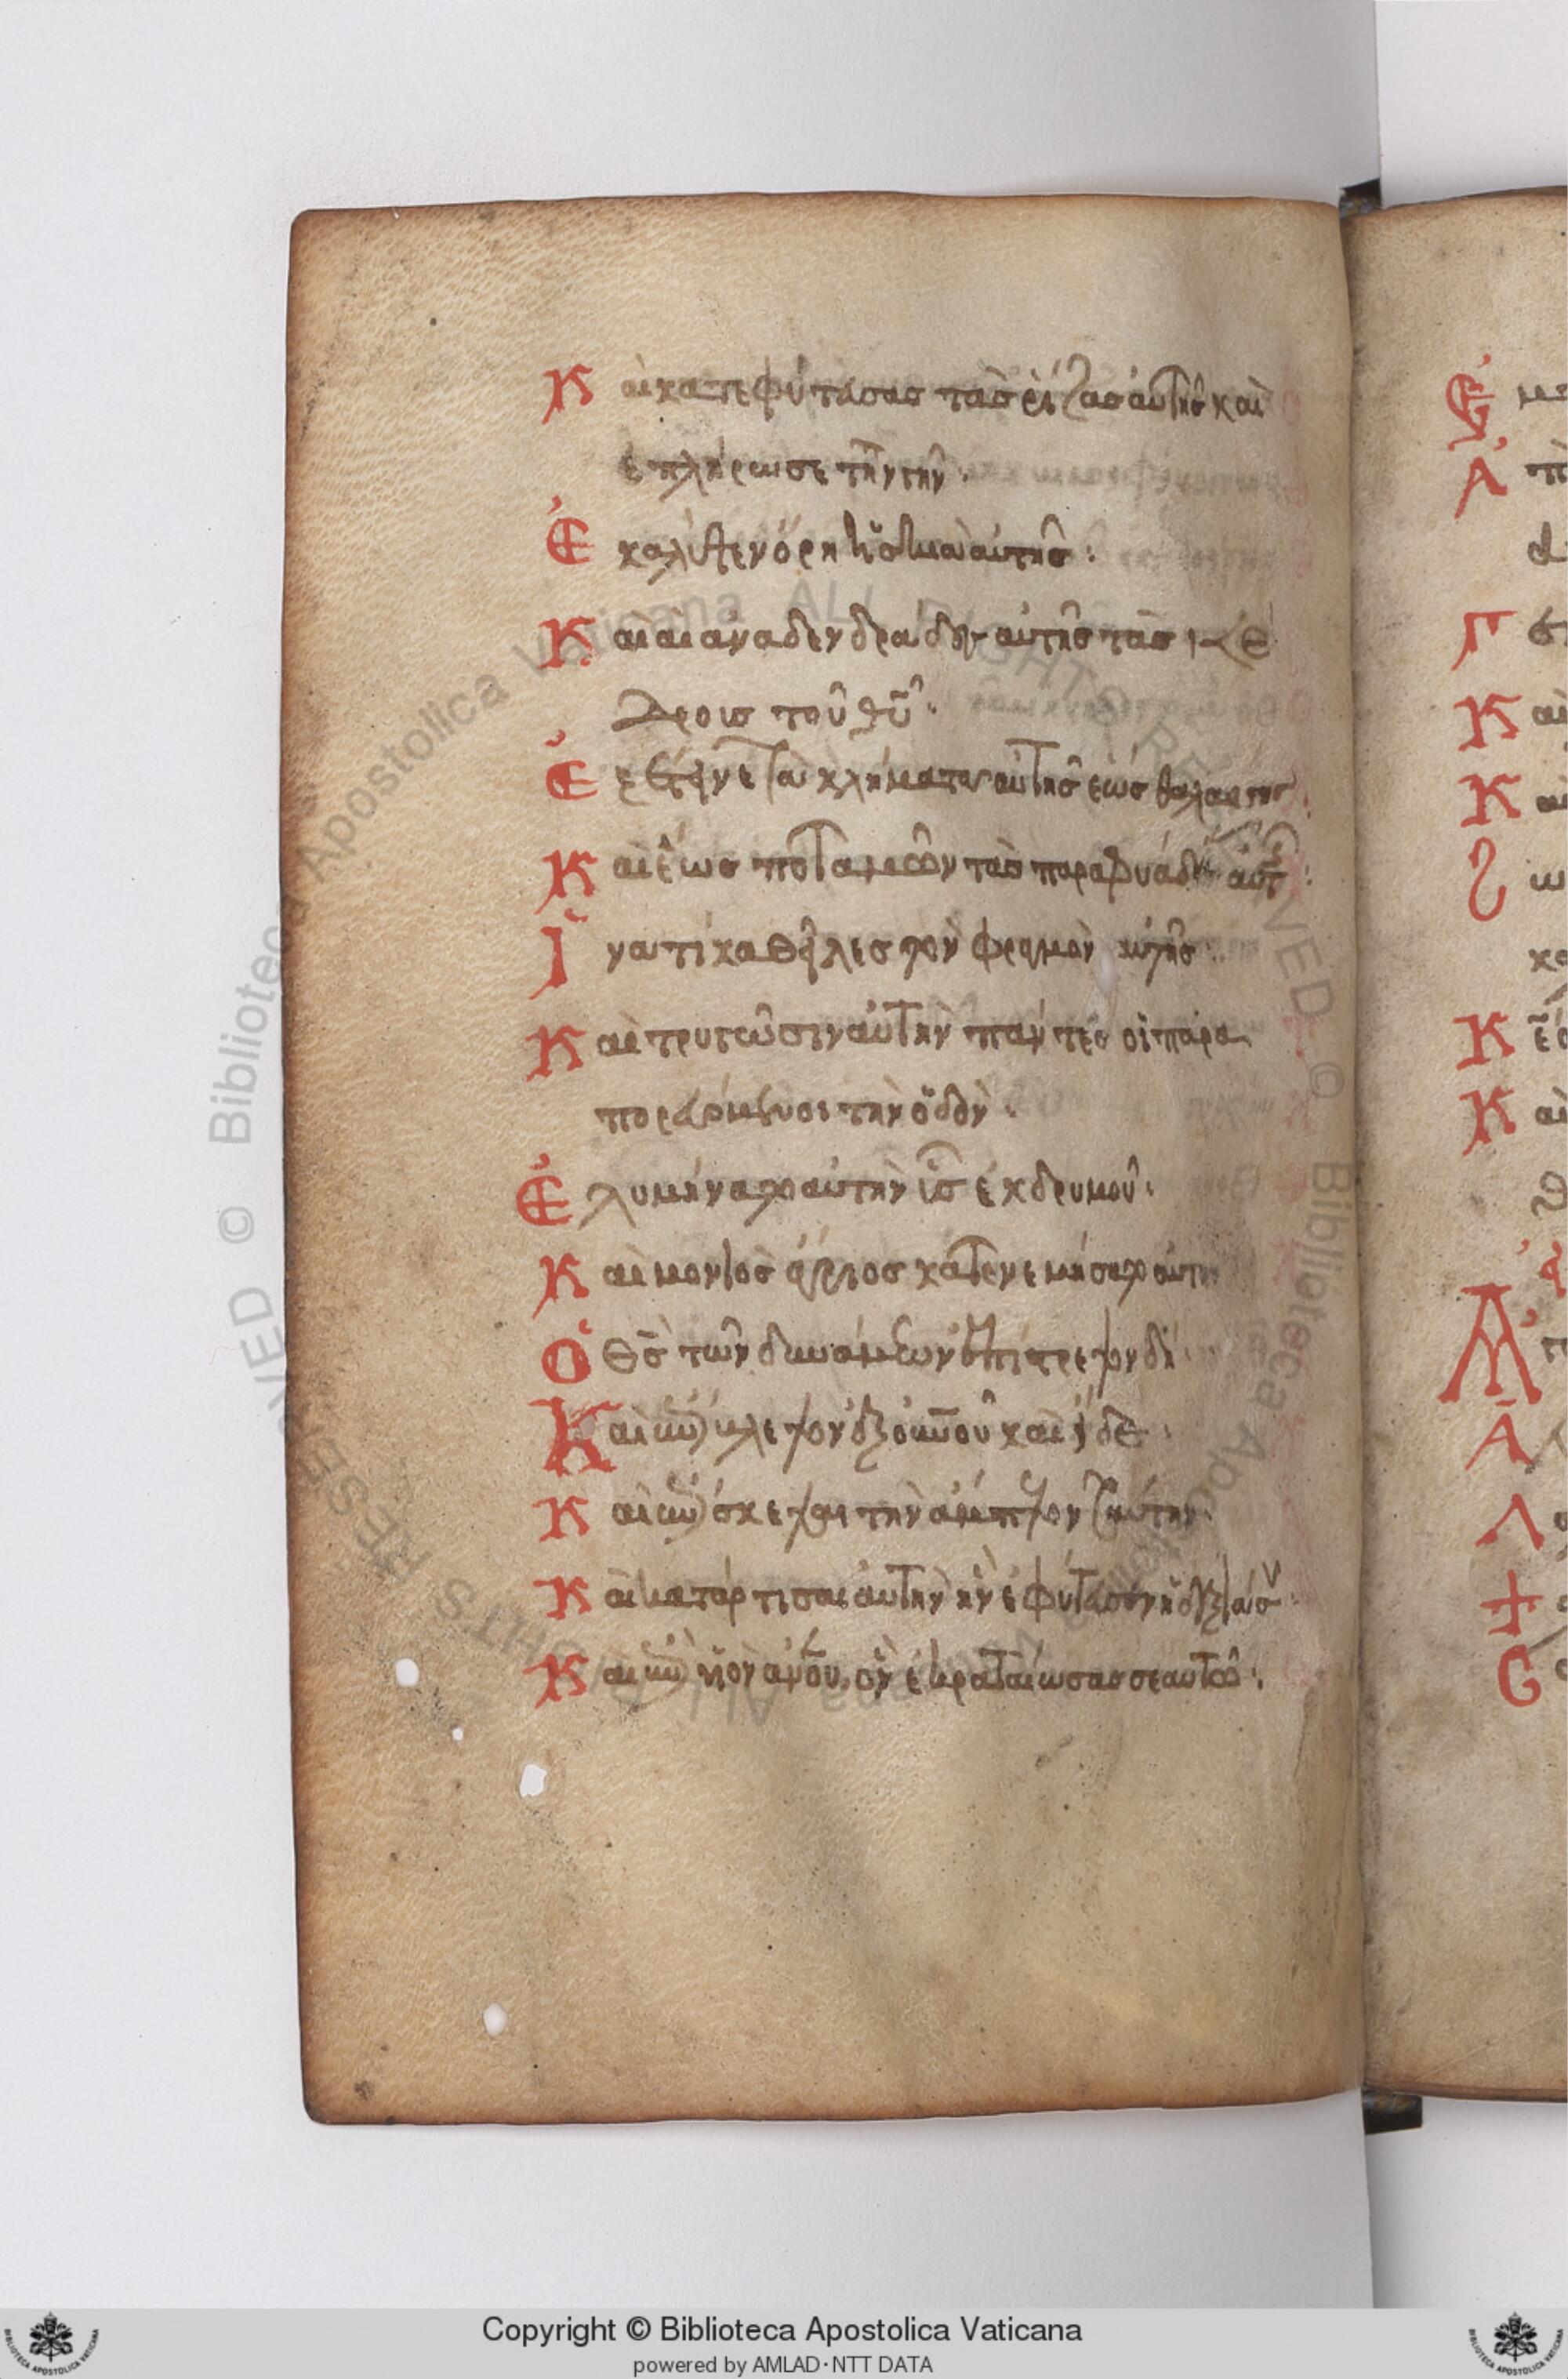 Καὶ κατεφύτασας τὰς ρίζας αὐτῆς καὶ
ἐπλήρωσε τὴν γῆν·
Ἐκάλυψεν ὄρη ἡ σκιὰ αὐτῆς:
Καὶ αἱ ἀναδενδράδες αὐτῆς τὰς κέ
δροις τοῦ θυ·
Ἐξέτεινε τὰ κλήματα αὐτῆς ἕως θαλάσσης:
Καὶ ἕως ποταμῶν τὰς παραφυάδας αὐτ:
Ἵνα τί καθῆλες τὸν φραγμὸν αὐτῆς
Καὶ τρυγῶσιν αὐτὴν πάντες οἱ παρα
πορευόμενοι τὴν ὁδόν·
Ἐλυμήνατο αὐτὴν ὗς ἐκ δρυμοῦ·
Καὶ μονιὸς ἄγριος κατενεμήσατο αὐτήν
Ὁ θς τῶν δυνάμεων ἐπίστρεψον δὴ
Καὶ ἐπίβλεψον ἐξ οὐνου καὶ ἴδε
Καὶ ἐπίσκεψαι τὴν ἄμπελον ταύτην
Καὶ κατάρτισαι αὐτὴν ἣν ἐφύτευσεν ἡ δεξιά σου
Καὶ ἐπὶ υἱὸν ανου, ὃν ἐκραταίωσας σεαυτῶ:
Ἐ
Ἀ
Γ
Καὶ
Κ
Κ
Κ
Ἀ
Λ
Copyright © Biblioteca Apostolica Vaticana
powered by AMLAD·NTT DATA